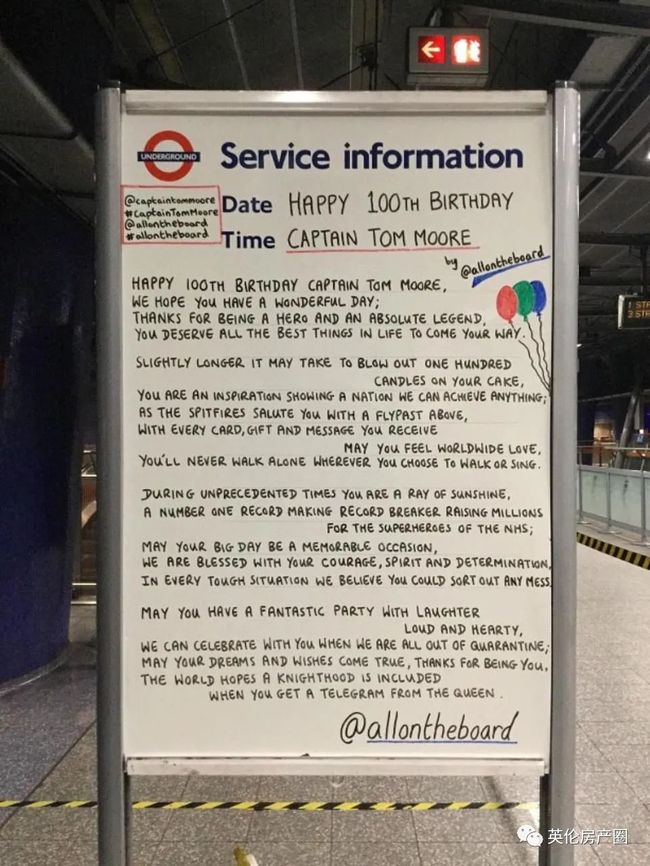 UNDERGROUND
Service information
@captaintommoore
#CaptainTomMoore
@allontheboard
#allontheboard
Date HAPPY 100TH BIRTHDAY
Time CAPTAIN TOM MOORE
by @allontheboard
HAPPY 100TH BIRTHDAY CAPTAIN TOM MOORE,
WE HOPE YOU HAVE A WONDERFUL DAY;
THANKS FOR BEING A HERO AND AN ABSOLUTE LEGEND,
YOU DESERVE ALL THE BEST THINGS IN LIFE TO COME YOUR WAY.
SLIGHTLY LONGER IT MAY TAKE TO BLOW OUT ONE HUNDRED
CANDLES ON YOUR CAKE,
YOU ARE AN INSPIRATION SHOWING A NATION WE CAN ACHIEVE ANYTHING;
AS THE SPITFIRES SALUTE YOU WITH A FLYPAST ABOVE,
WITH EVERY CARD, GIFT AND MESSAGE YOU RECEIVE
MAY YOU FEEL WORLDWIDE LOVE,
YOU'LL NEVER WALK ALONE WHEREVER YOU CHOOSE TO WALK OR SING.
DURING UNPRECEDENTED TIMES YOU ARE A RAY OF SUNSHINE,
A NUMBER ONE RECORD MAKING RECORD BREAKER RAISING MILLIONS
FOR THE SUPERHEROES OF THE NHS;
MAY YOUR BIG DAY BE A MEMORABLE OCCASION,
WE ARE BLESSED WITH YOUR COURAGE, SPIRIT AND DETERMINATION,
IN EVERY TOUGH SITUATION WE BELIEVE YOU COULD SORT OUT ANY MESS.
MAY YOU HAVE A FANTASTIC PARTY WITH LAUGHTER
LOUD AND HEARTY,
WE CAN CELEBRATE WITH YOU WHEN WE ARE ALL OUT OF QUARANTINE;
MAY YOUR DREAMS AND WISHES COME TRUE, THANKS FOR BEING YOU,
THE WORLD HOPES A KNIGHTHOOD IS INCLUDED
WHEN YOU GET A TELEGRAM FROM THE QUEEN.
@allontheboard
英伦房产圈